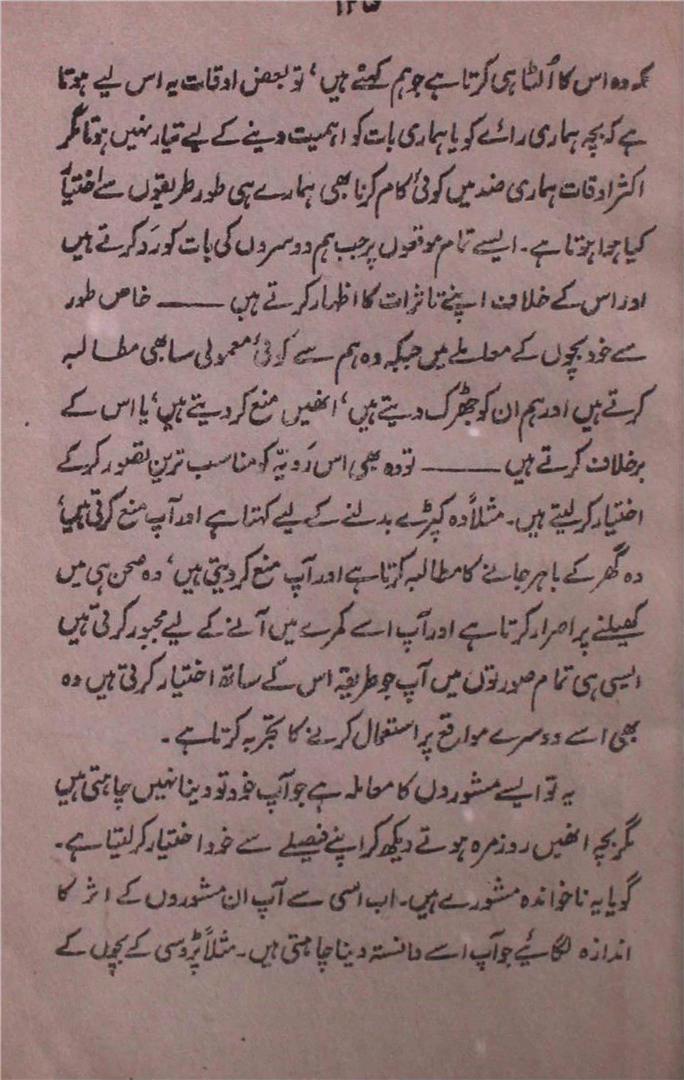 کہ وہ اس کا اُلٹا ہی کرتا ہے جو ہم کہتے ہیں، تو بعض اوقات یہ اس لیے ہوتا
ہے کہ بچہ ہماری رائے کو یا ہماری بات کو اہمیت دینے کے لیے تیار نہیں ہوتا مگر
اکثر اوقات ہماری ضد میں کوئی کام کرنا بھی ہمارے ہی طور طریقوں سے اختیار
کیا ہوا ہوتا ہے۔ ایسے تمام موقعوں پر جب ہم دوسروں کی بات کو رَد کرتے ہیں
اور اس کے خلاف اپنے تاثرات کا اظہار کرتے ہیں ——— خاص طور
سے خود بچوں کے معاملے میں جبکہ وہ ہم سے کوئی معمولی سا بھی مطالبہ
کرتے ہیں اور ہم ان کو جھڑک دیتے ہیں، انھیں منع کر دیتے ہیں، یا اس کے
برخلاف کرتے ہیں ——— تو وہ بھی اس رَویّہ کو مناسب ترین تصور کر کے
اختیار کر لیتے ہیں۔ مثلاً وہ کپڑے بدلنے کے لیے کہتا ہے اور آپ منع کرتی ہیں،
وہ گھر کے باہر جانے کا مطالبہ کرتا ہے اور آپ منع کر دیتی ہیں، وہ صحن ہی میں
کھیلنے پر اصرار کرتا ہے اور آپ اسے کمرے میں آنے کے لیے مجبور کرتی ہیں
ایسی ہی تمام صورتوں میں آپ جو طریقہ اس کے ساتھ اختیار کرتی ہیں وہ
بھی اسے دوسرے مواقع پر استعمال کرنے کا تجربہ کرتا ہے۔
یہ تو ایسے مشوروں کا معاملہ ہے جو آپ خود تو دینا نہیں چاہتی ہیں
مگر بچہ انھیں روزمرہ ہوتے دیکھ کر اپنے فیصلے سے خود اختیار کر لیتا ہے۔
گویا یہ ناخواندہ مشورے ہیں۔ اب اسی سے آپ ان مشوروں کے اثر کا
اندازہ لگائیے جو آپ اسے دانستہ دینا چاہتی ہیں۔ مثلاً پڑوسی کے بچوں کے